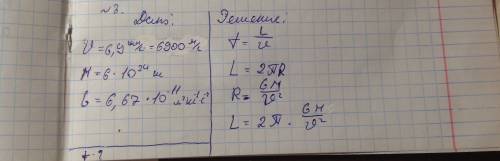 №3.
Дано:
V = 6,9 км/с = 6900 м/с
M = 6 · 10²⁴ кг
G = 6,67 · 10⁻¹¹ м³кг⁻¹с⁻²
t - ?
Решение:
T = L/v
L = 2πR
R = GM/v²
L = 2π · GM/v²